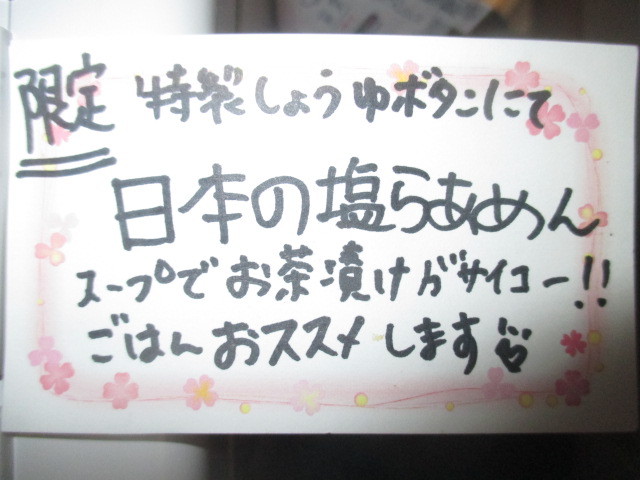 限定 特製しょうゆボタンにて
日本の塩らあめん
スープでお茶漬けがサイコー!!
ごはんおススメします♡